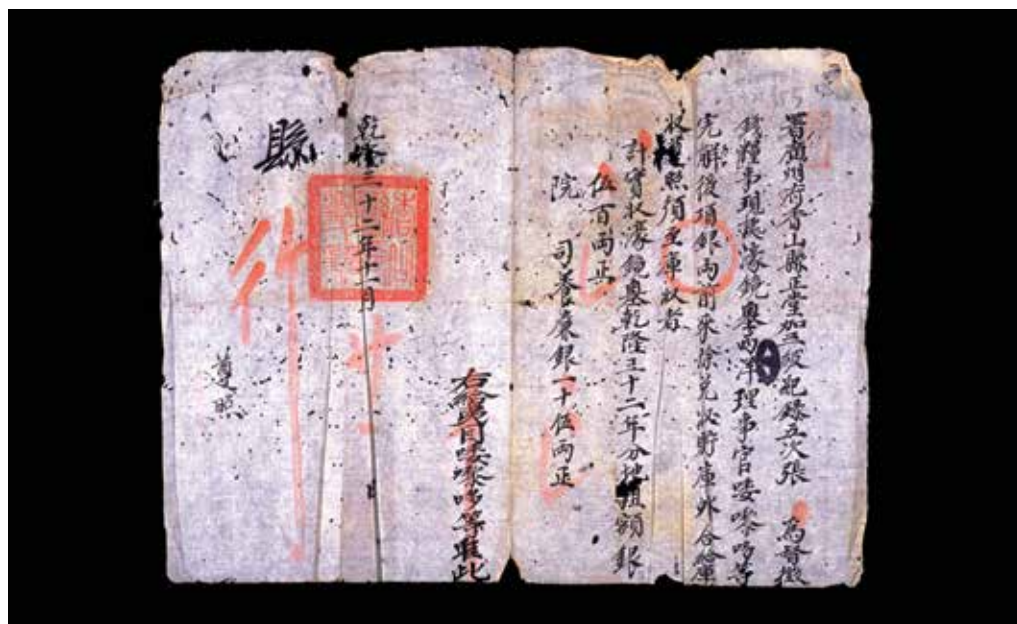 署廣州府香山縣正堂加三級紀錄五次張 為督徵
錢糧事現據濠鏡澳西洋理事官喽嚟哆等
完解後項銀兩前來除兌收貯庫外合給庫
收遵照須至庫收者
計實收濠鏡澳乾隆三十二年分地租額銀
伍百兩正
院 司養廉銀一十伍兩正
右給夷目喽嚟哆等准此
乾隆三十二年十一月
縣 行
遵照